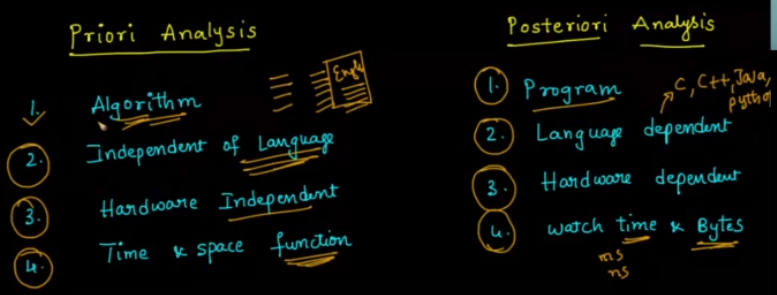 Priori Analysis
1. Algorithm
Engli
2. Independent of Language
3. Hardware Independent
4. Time & space function
Posteriori Analysis
1. Program
C, C++, Java,
pytho
2. Language dependent
3. Hardware dependent
4. watch time & Bytes
ms
ns